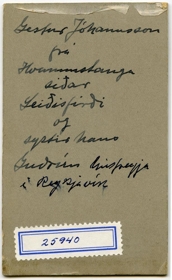 Gestur Jóhannsson
frá
Hvammstanga
síðar
Seiðisfirði
og
systir hans
Guðrún húsfreyja
í Reykjavík
25940